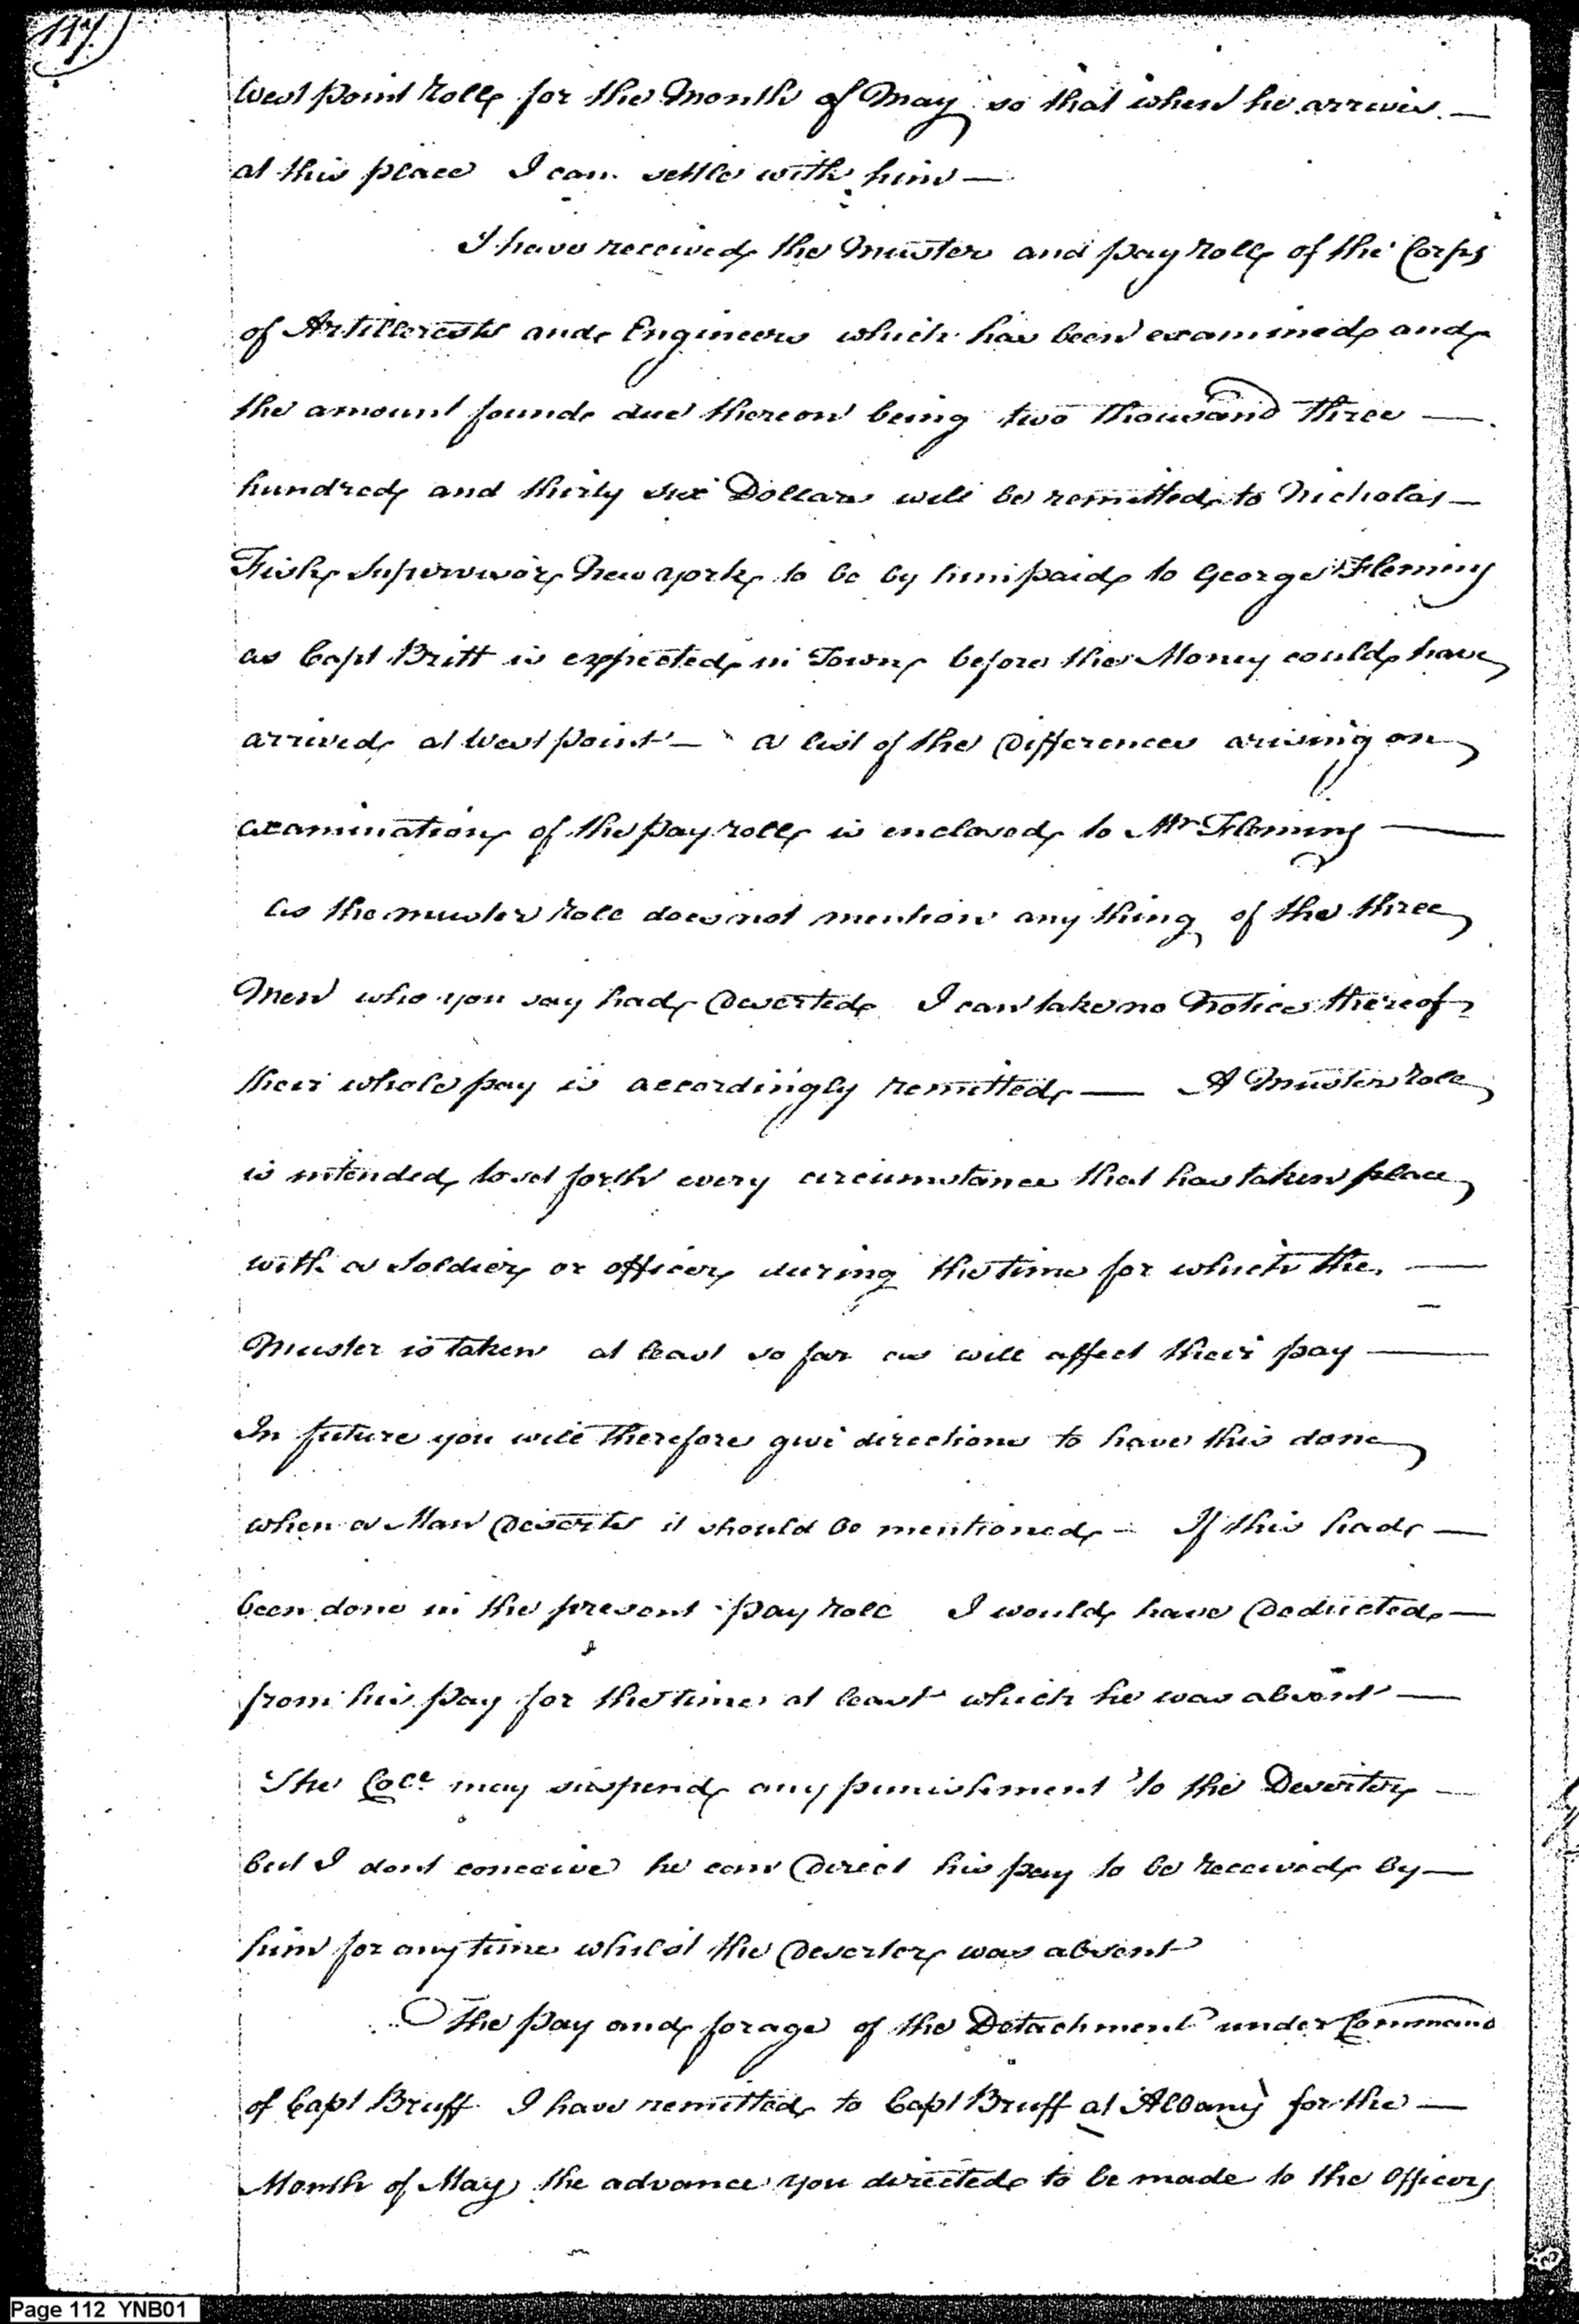 117
West point Rolls for the Month of May so that when he arrives —
at this place I can settle with him —
I have received the Muster and pay Rolls of the Corps
of Artillerests and Engineers which has been examined and
the amount found due thereon being two thousand three —
hundred and thirty six Dollars will be remitted to Nicholas —
Fish Supervisor New york to be by him paid to George Fleming
as Capt Britt is expected in Town before the Money could have
arrived at West point — a list of the Differences arising on
examination of the pay rolls is enclosed to Mr Fleming —
As the muster Role does not mention any thing of the three
Men who you say had Deserted I can take no Notice thereof
their whole pay is accordingly remitted — A Muster Role
is intended to set forth every circumstance that has taken place
with a Soldier or officer during the time for which the —
Muster is taken at least so far as will affect their pay —
In future you will therefore give directions to have this done
when a Man Deserts it should be mentioned — If this had —
been done in the present pay Role I would have Deducted —
from his pay for the time at least which he was absent —
The Col may suspend any punishment to the Deserter —
but I dont conceive he can Direct his pay to be received by —
him for any time whilst the Deserter was absent
The pay and forage of the Detachment under Command
of Capt Bruff I have remitted to Capt Bruff at Albany for the —
Month of May the advance you directed to be made to the Officers
Page 112 YNB01